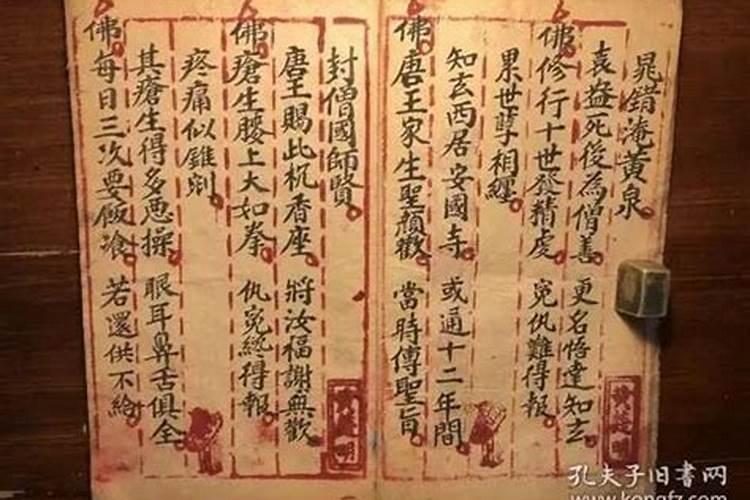 晁錯淹黃泉
袁益死後為僧善 更名悟達知玄
佛修行十世發精虔 寃仇難得報
累世孽相纏
知玄西居安國寺 或通十二年間
佛唐王家生聖顏歡 當時傳聖旨
封僧國師賢
唐王賜此杌香座 將汝福謝無歡
佛瘡生腰上大如拳 仇寃終得報
疼痛似錐剜
其瘡生得多恶操 眼耳鼻舌俱全
佛每日三次要飯飡 若還供不給
孔夫子旧书网
www.kongfz.com